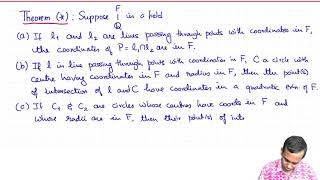 Theorem (*) : Suppose F | Q is a field
(a) If l1 and l2 are lines passing through points with coordinates in F,
the coordinates of P = l1 ∩ l2 are in F.
(b) If l is line passing through points with coordinates in F, C a circle with
centre having coordinates in F and radius in F, then the point(s)
of intersection of l and C have coordinates in a quadratic extn of F.
(c) If C1 & C2 are circles whose centres have coords in F and
whose radii are in F, then their point(s) of ints